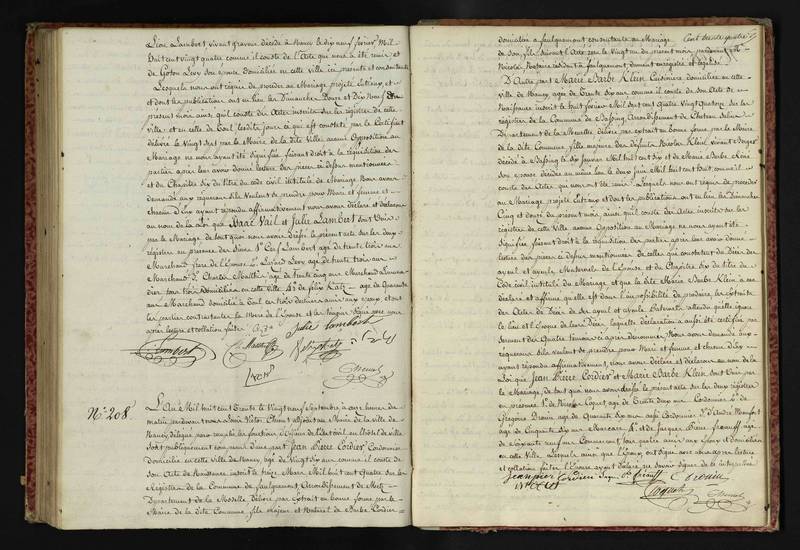 Léon Lambert, vivant graveur décédé à Nancy le dix neuf février Mil
huit cent vingt quatre comme il conste de l'Acte qui nous a été remis et
de Goton Levy son épouse domiciliée en cette ville ici présente et consentante
Lesquels nous ont requis de procéder au Mariage projeté entr'eux et
et dont les publications ont eu lieu les Dimanches Douze et Dix Neuf
présent mois ainsi qu'il conste des Actes inscrits sur les régistres de cette
ville et en celle de Toul lesdits jours ce qui est constaté par le Certificat
délivré le vingt par le Maire de la dite Ville aucune Opposition au
Mariage ne nous ayant été signifiée, faisant droit à la réquisition des
parties après leur avoir donné lecture des pièces ci dessus mentionnées
et du Chapitre Six du titre du code civil intitulé du Mariage Nous avons
demandé aux requérans s'ils veulent se prendre pour Mari et femme et
chacun d'eux ayant répondu affirmativement nous avons déclaré et déclarons
au nom de la Loi que Isaac Vail et Julie Lambert sont Unis
par le Mariage de tout quoi nous avons dressé le présent acte sur les deux
régistres en présence des Sieurs 1° Cerf Lambert agé de trente trois ans
Marchand frère de l'Epouse 2° Lazard Levy agé de trente trois ans
Marchand 3° Charles Mouthier agé de trente cinq ans Marchand
tous trois Domiciliés en cette ville 4° de Félix Katz agé de Quarante
ans Marchand domicilié à Toul
les parties contractantes la Mère de l'Epouse et les témoins signé avec nous
après lecture et collation faite
Julie Lambert
Lambert
N° 208.
L'An Mil huit cent Trente le Vingt neuf Septembre à onze heures du
matin pardevant nous Louis Victor Chenut adjoint au Maire de la ville de
Nancy délégué pour remplir les fonctions d'Officier de l'Etat civil en l'hôtel de ville
Sont publiquement comparus d'une part Jean Pierre Cordier Cordonnier
Domicilié en cette ville de Nancy, agé de Vingt six ans comme il conste de
son Acte de Naissance inscrit le treize Mars Mil huit cent Quatre sur les
Régistres de la Commune de faulquemont Arrondissement de Metz
Département de la Moselle délivré par extrait en bonne forme par le
Maire de la dite Commune, fils Majeur et Naturel de Barbe Cordier
domiciliée à faulquemont, consentante au Mariage
Cent trente quatre
de son fils, suivant l'Acte reçu le Vingt un du présent mois, pardevant
Nicolas Notaire résidant à faulquemont, dûment enregistré et légalisé
D'Autre part Marie Barbe Klein, Cuisinière domiciliée en cette
ville de Nancy, agée de Trente six ans comme il conste de son Acte de
Naissance inscrit le huit février Mil sept cent Quatre vingt Quatorze sur les
régistres de la Commune de Bassing Arrondissement de Château Salins
Département de la Meurthe délivré par extrait en bonne forme par le Maire
de la dite Commune fille majeure des défunts Nicolas Klein vivant Berger
décédé à Bassing le six Janvier Mil huit cent six et de Marie Barbe René
son épouse décédée au même lieu le deux Juin Mil huit cent huit comme il
conste des Actes qui nous ont été remis. Lesquels nous ont requis de procéder
au Mariage projeté entr'eux et dont les publications ont eu lieu les Dimanches
Cinq et douze du présent mois, ainsi qu'il conste des Actes inscrits sur les
régistres de cette Ville aucune Opposition au Mariage ne nous ayant été
Signifiée, faisant droit à la réquisition des parties après leur avoir donné
lecture des pièces ci dessus mentionnées de celles qui constatent du Décès des
ayeul et ayeule Maternels de l'Epouse et du Chapitre Six du titre du
Code civil intitulé du Mariage et que la dite Marie Barbe Klein a
déclaré et affirmé qu'elle est dans l'impossibilité de produire les extraits
des Actes de Décès de ses ayeul et ayeule Paternels attendu qu'elle ignore
le lieu et l'Epoque de leurs Décès, laquelle déclaration a aussi été certifiée par
serment des Quatre témoins ci après dénommés, Nous avons demandé aux
requérans s'ils veulent se prendre pour Mari et femme et chacun d'eux
ayant répondu affirmativement, Nous avons déclaré et déclarons au nom de la
Loi que Jean Pierre Cordier et Marie Barbe Klein sont Unis par
le Mariage, de tout quoi nous avons dressé le présent acte sur les deux régistres
en présence 1° de Nicolas Coquet agé de Trente deux ans Cordonnier 2° de
Grégoire Drouin agé de Quarante six ans aussi Cordonnier 3° d'André Monfort
agé de Cinquante six ans 4° et de Jacques Pierre agé
de Soixante neuf ans Commerçant, tous quatre amis aux Epoux et domiciliés
en cette Ville. Lesquels ainsi que l'Epoux, ont signé avec nous après lecture
et collation faite l'Epouse ayant déclaré ne savoir signer de ce interpellée
jean pier Cordier